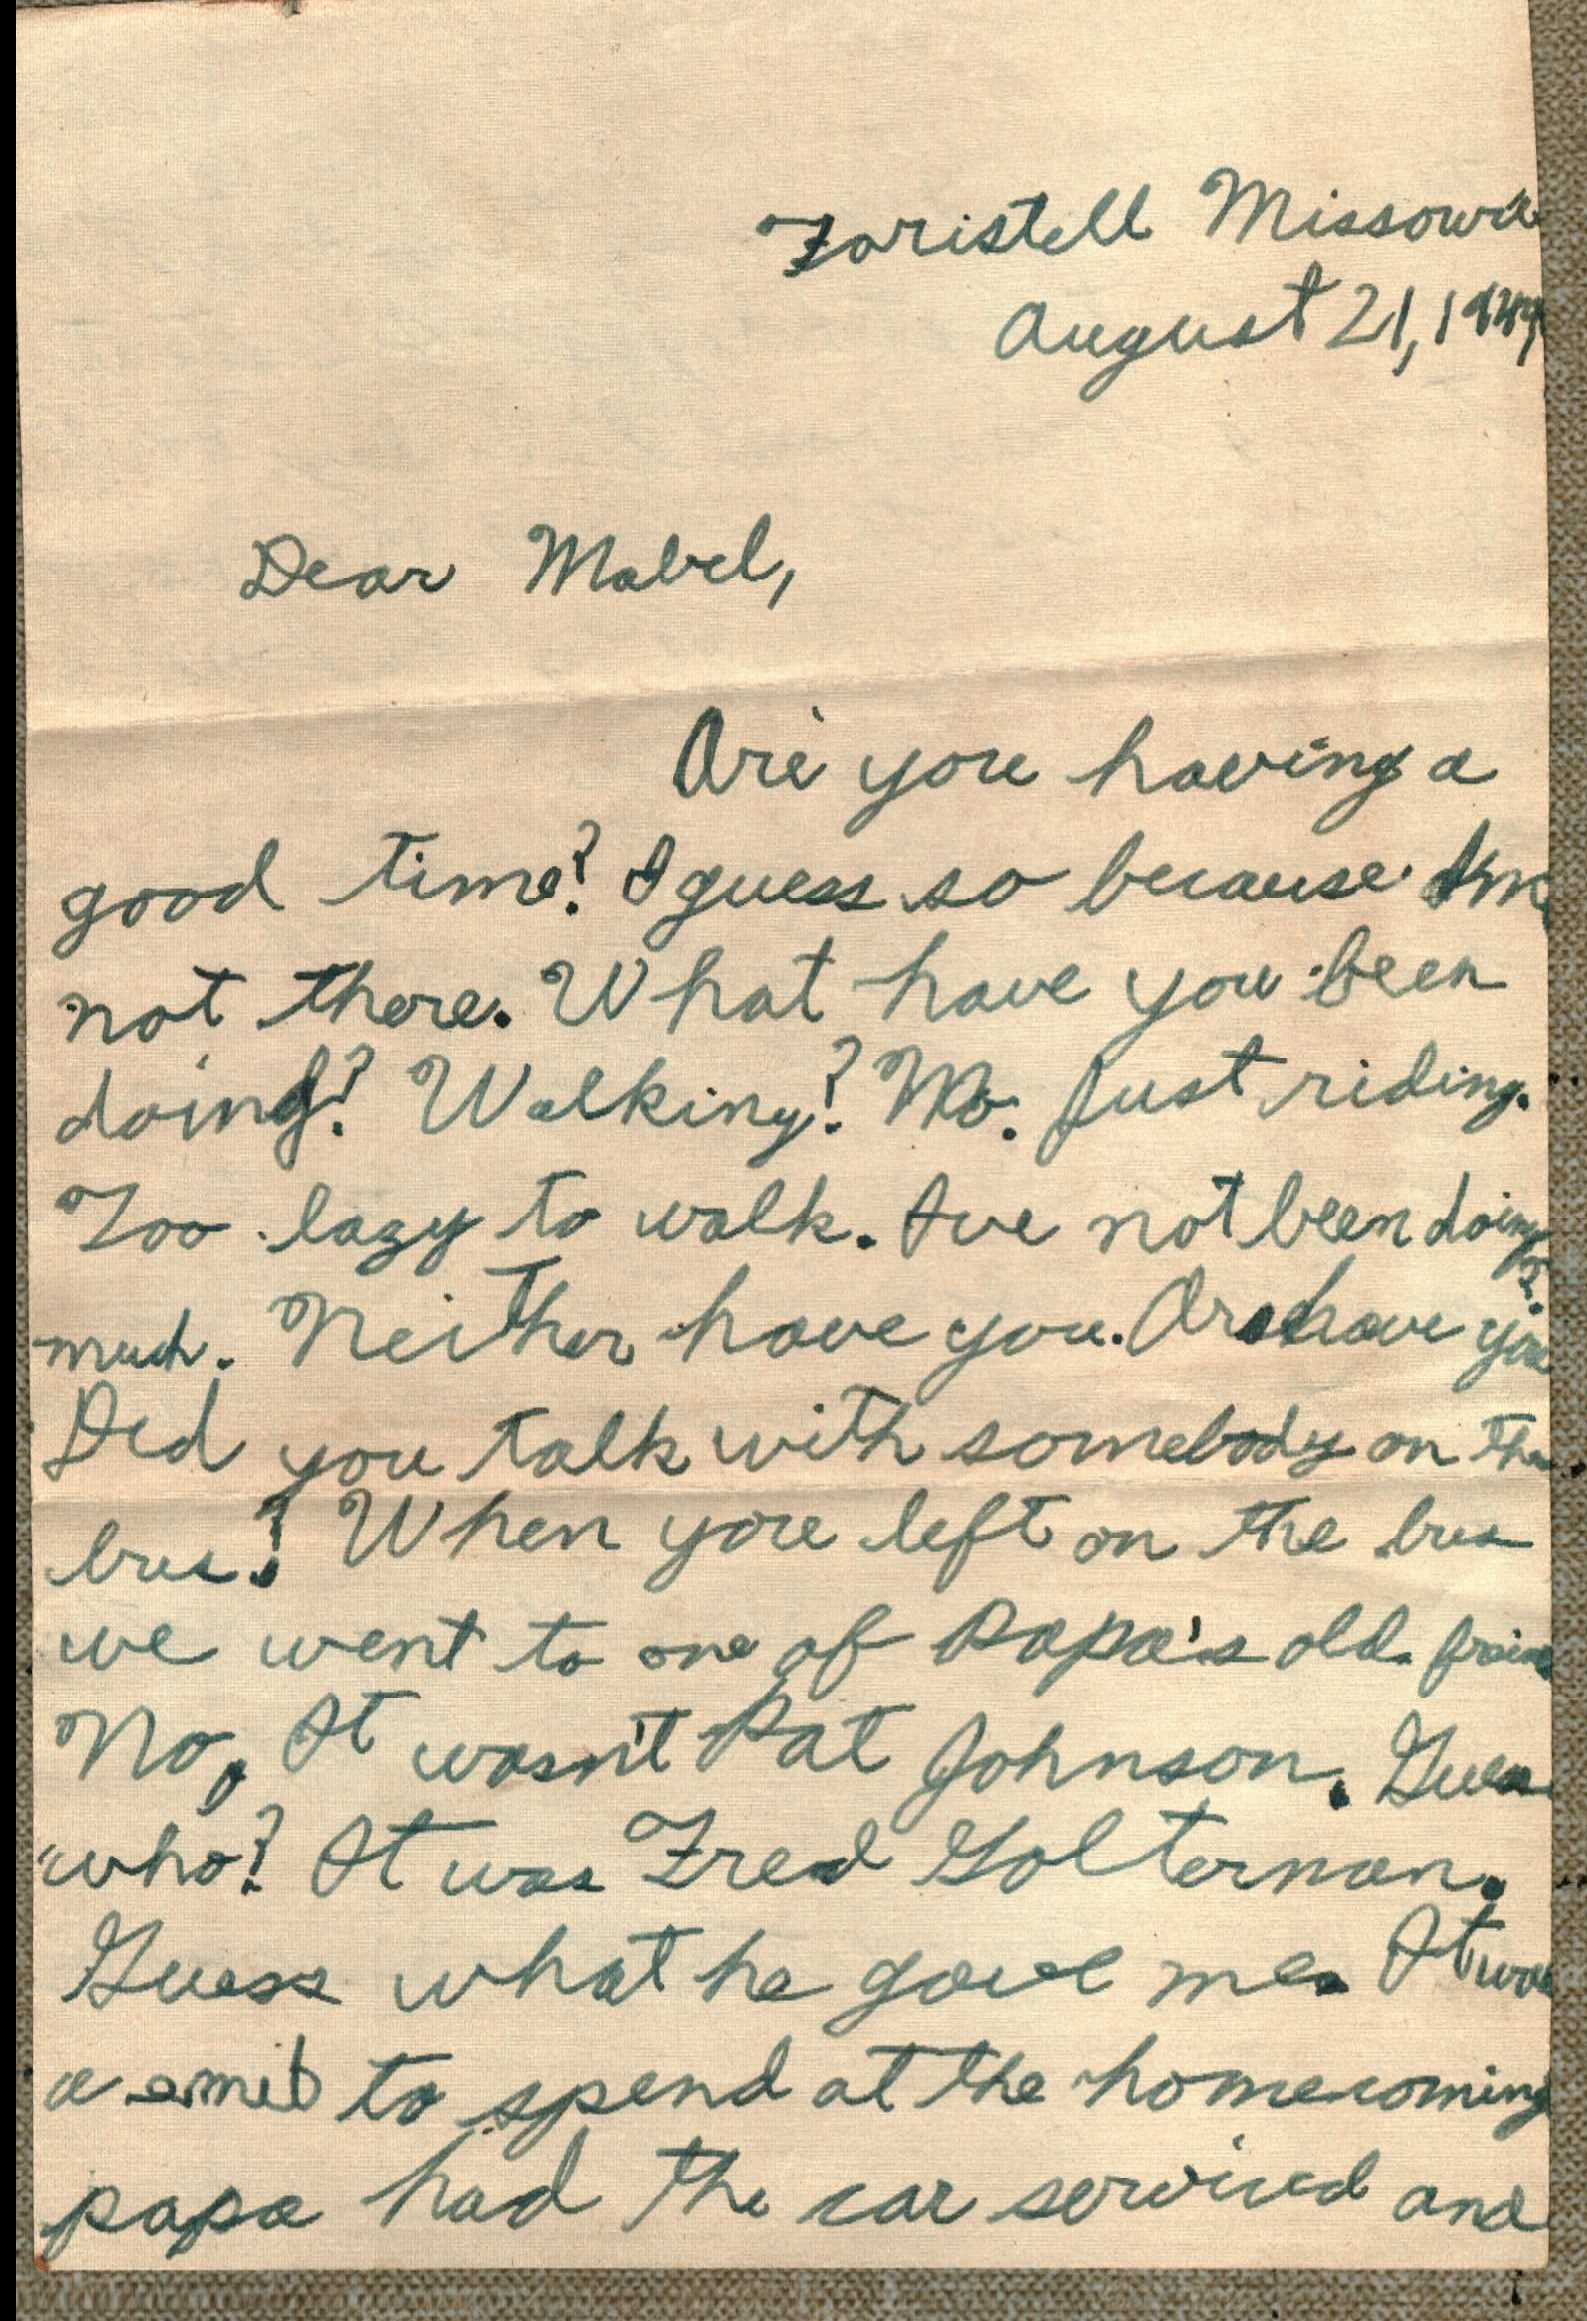 Foristell Missouri
August 21, 1949
Dear Mabel,
Are you having a
good time? I guess so because I'm
not there. What have you been
doing? Walking? No. Just riding.
Too lazy to walk. Ive not been doing
much. Neither have you. Or have you?
Did you talk with somebody on the
bus? When you left on the bus
we went to one of Papa's old frien
No, It wasn't Pat Johnson. Guess
who? It was Fred Golterman.
Guess what he gave me. It was
a to spend at the homecoming
papa had the car serviced and